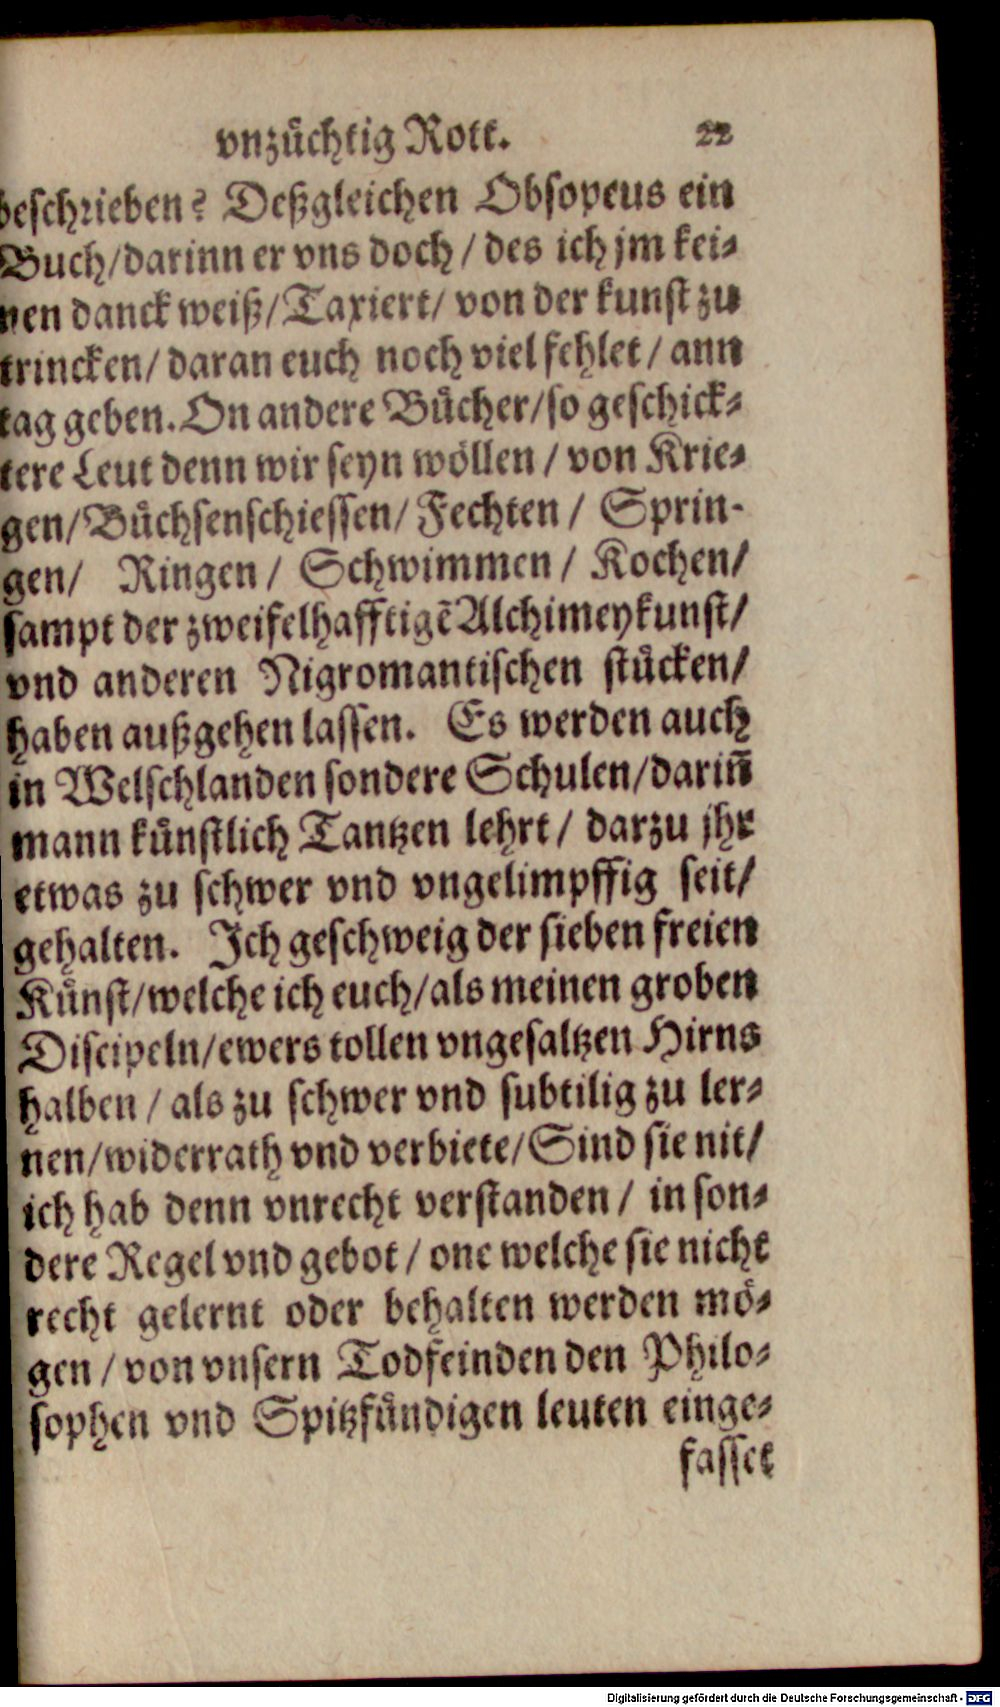 vnzüchtig Rott. 22
beschrieben? Deßgleichen Obsopeus ein
Buch/darinn er vns doch / des ich jm kei⸗
nen danck weiß/Taxiert/ von der kunst zu
trincken/ daran euch noch viel fehlet / ann
tag geben. On andere Bücher/so geschick⸗
tere Leut denn wir seyn wöllen / von Krie⸗
gen/Büchsenschiessen/ Fechten / Sprin-
gen/ Ringen / Schwimmen / Kochen/
sampt der zweifelhafftigē Alchimeykunst/
vnd anderen Nigromantischen stücken/
haben außgehen lassen. Es werden auch
in Welschlanden sondere Schulen/dariñ
mann künstlich Tantzen lehrt / darzu jhr
etwas zu schwer vnd vngelimpffig seit/
gehalten. Ich geschweig der sieben freien
Künst/welche ich euch/als meinen groben
Discipeln/ewers tollen vngesaltzen Hirns
halben / als zu schwer vnd subtilig zu ler⸗
nen/widerrath vnd verbiete/Sind sie nit/
ich hab denn vnrecht verstanden / in son⸗
dere Regel vnd gebot / one welche sie nicht
recht gelernt oder behalten werden mö⸗
gen / von vnsern Todfeinden den Philo⸗
sophen vnd Spitzfündigen leuten einge⸗
fasset
Digitalisierung gefördert durch die Deutsche Forschungsgemeinschaft - DFG